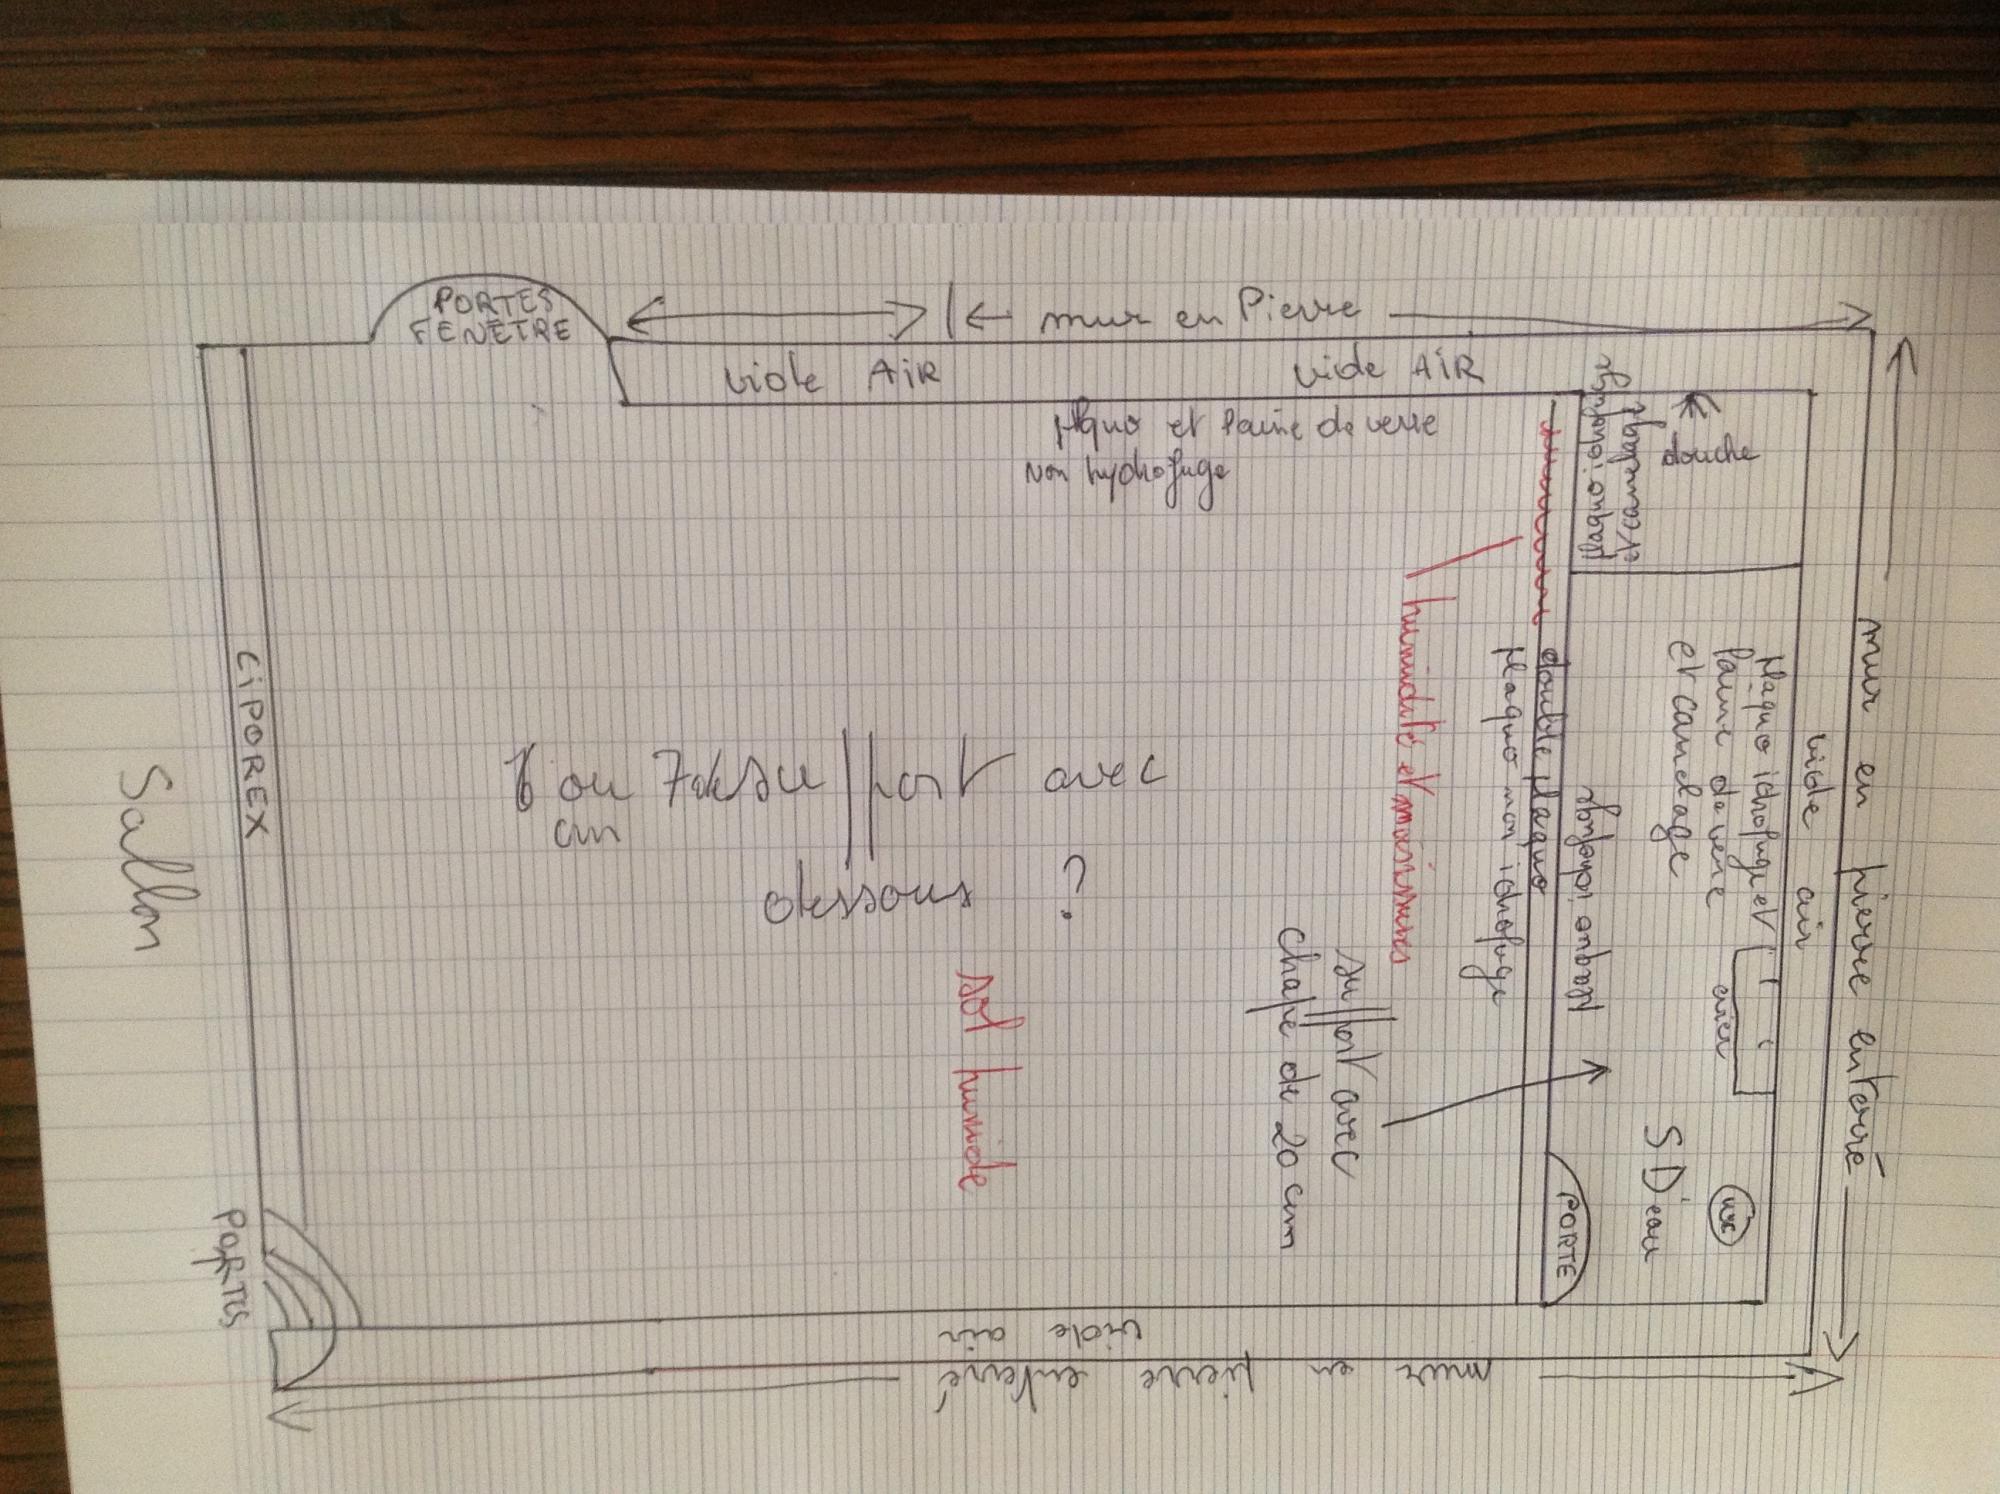 PORTES
FENÊTRE
mur en Pierre
vide AIR
vide AIR
plaquo et laine de verre
non hydrofuge
plaquo idrofuge
et carrelage
douche
mur en pierre enterré
vide air
plaquo idrofuge et
laine de verre
et carrelage
evier
S D'eau
wc
PORTE
plaquo idrofuge
double plaquo
plaquo non idrofuge
humidité et moisissures
support avec
chape de 20 cm
6 ou 7 de support avec
cm
dessous ?
sol humide
CiPOREX
Sallon
PORTES
vide air
mur en pierre enterré